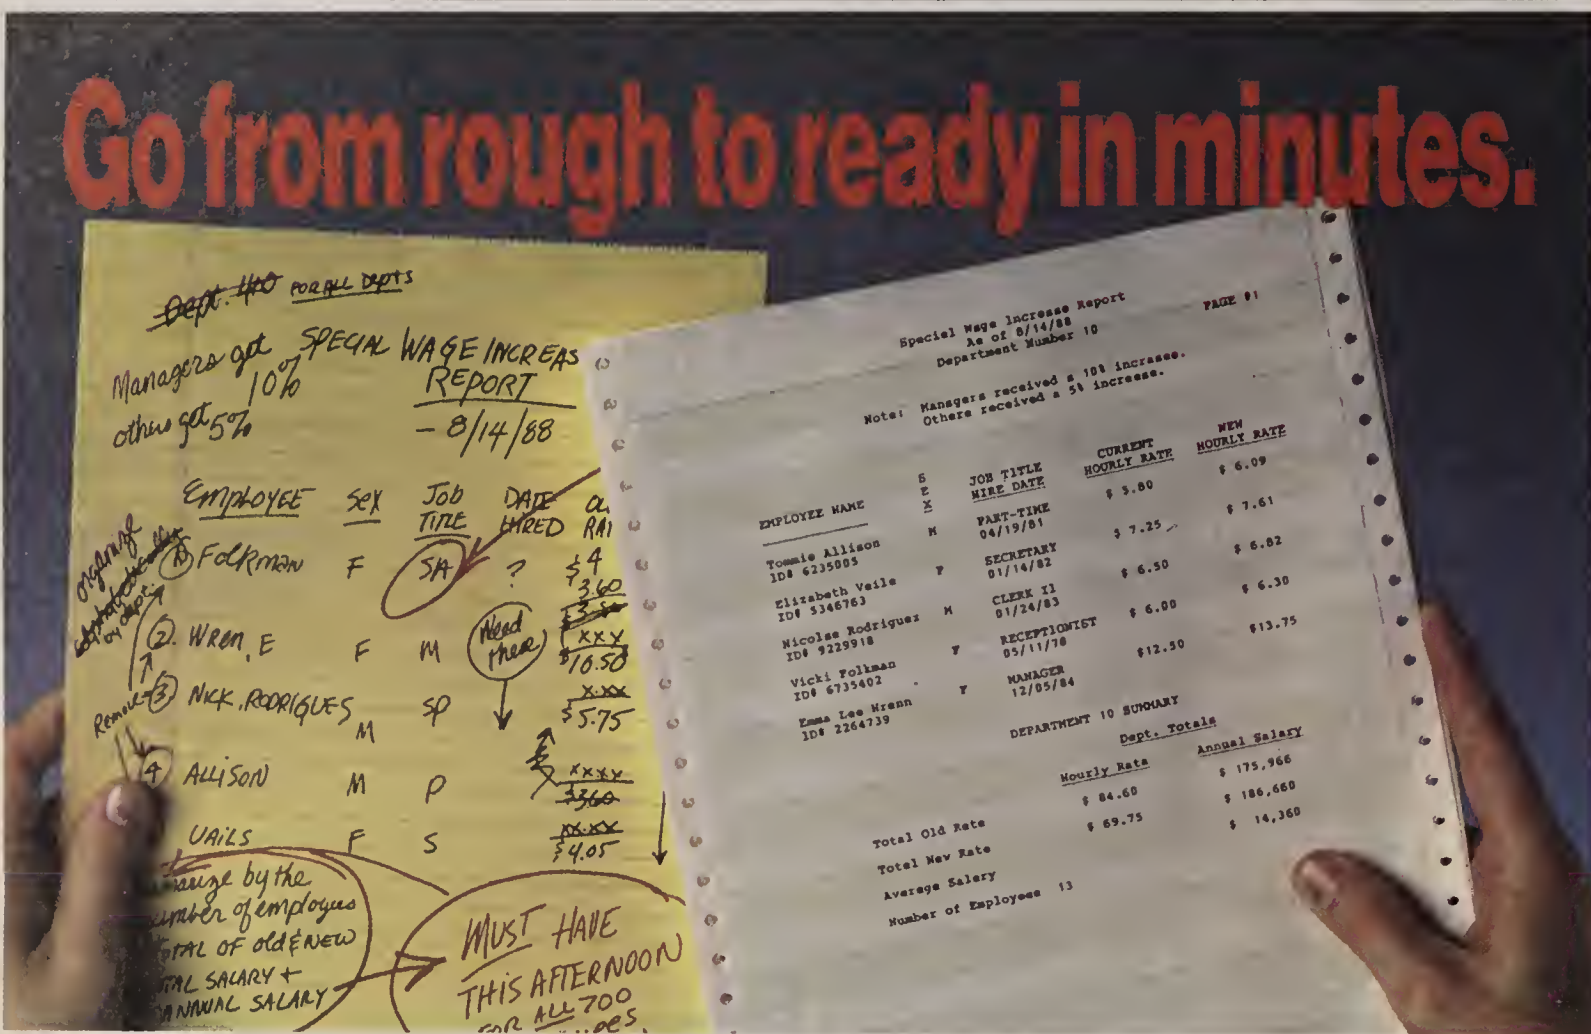 Go from rough to ready in minutes.
Dept. 410 FOR ALL DEPTS
Managers get 10%
others get 5%
SPECIAL WAGE INCREAS
REPORT
- 8/14/88
EMPLOYEE Sex Job TITLE DATE HIRED
organize
by dept.
1. Folkman F SA ? $4
3.60
2. WREN, E F M Need these XXX
$10.50
Remove 3 NICK. RODRIGUES M SP X.XX
$5.75
4 ALLISON M P XXXX
$360
VAILS F S XX.XX
$4.05
by the
number of employees
OF old & NEW
SALARY +
ANNUAL SALARY
MUST HAVE
THIS AFTERNOON
FOR ALL 700
Special Wage Increase Report
As of 8/14/88
Department Number 10
PAGE #1
Note: Managers received a 10% increase.
Others received a 5% increase.
EMPLOYEE NAME SEX JOB TITLE HIRE DATE CURRENT HOURLY RATE NEW HOURLY RATE
Tommie Allison M PART-TIME $ 5.80 $ 6.09
ID# 6235005 04/19/81
Elizabeth Vaile F SECRETARY $ 7.25 $ 7.61
ID# 5346763 01/14/82
Nicolas Rodriguez M CLERK II $ 6.50 $ 6.82
ID# 9229918 01/24/83
Vicki Folkman F RECEPTIONIST $ 6.00 $ 6.30
ID# 6735402 05/11/78
Emma Lee Wrenn F MANAGER $12.50 $13.75
ID# 2264739 12/05/84
DEPARTMENT 10 SUMMARY
Dept. Totals
Hourly Rate Annual Salary
Total Old Rate $ 84.60 $ 175,966
Total New Rate $ 69.75 $ 186,660
Average Salary $ 14,360
Number of Employees 13